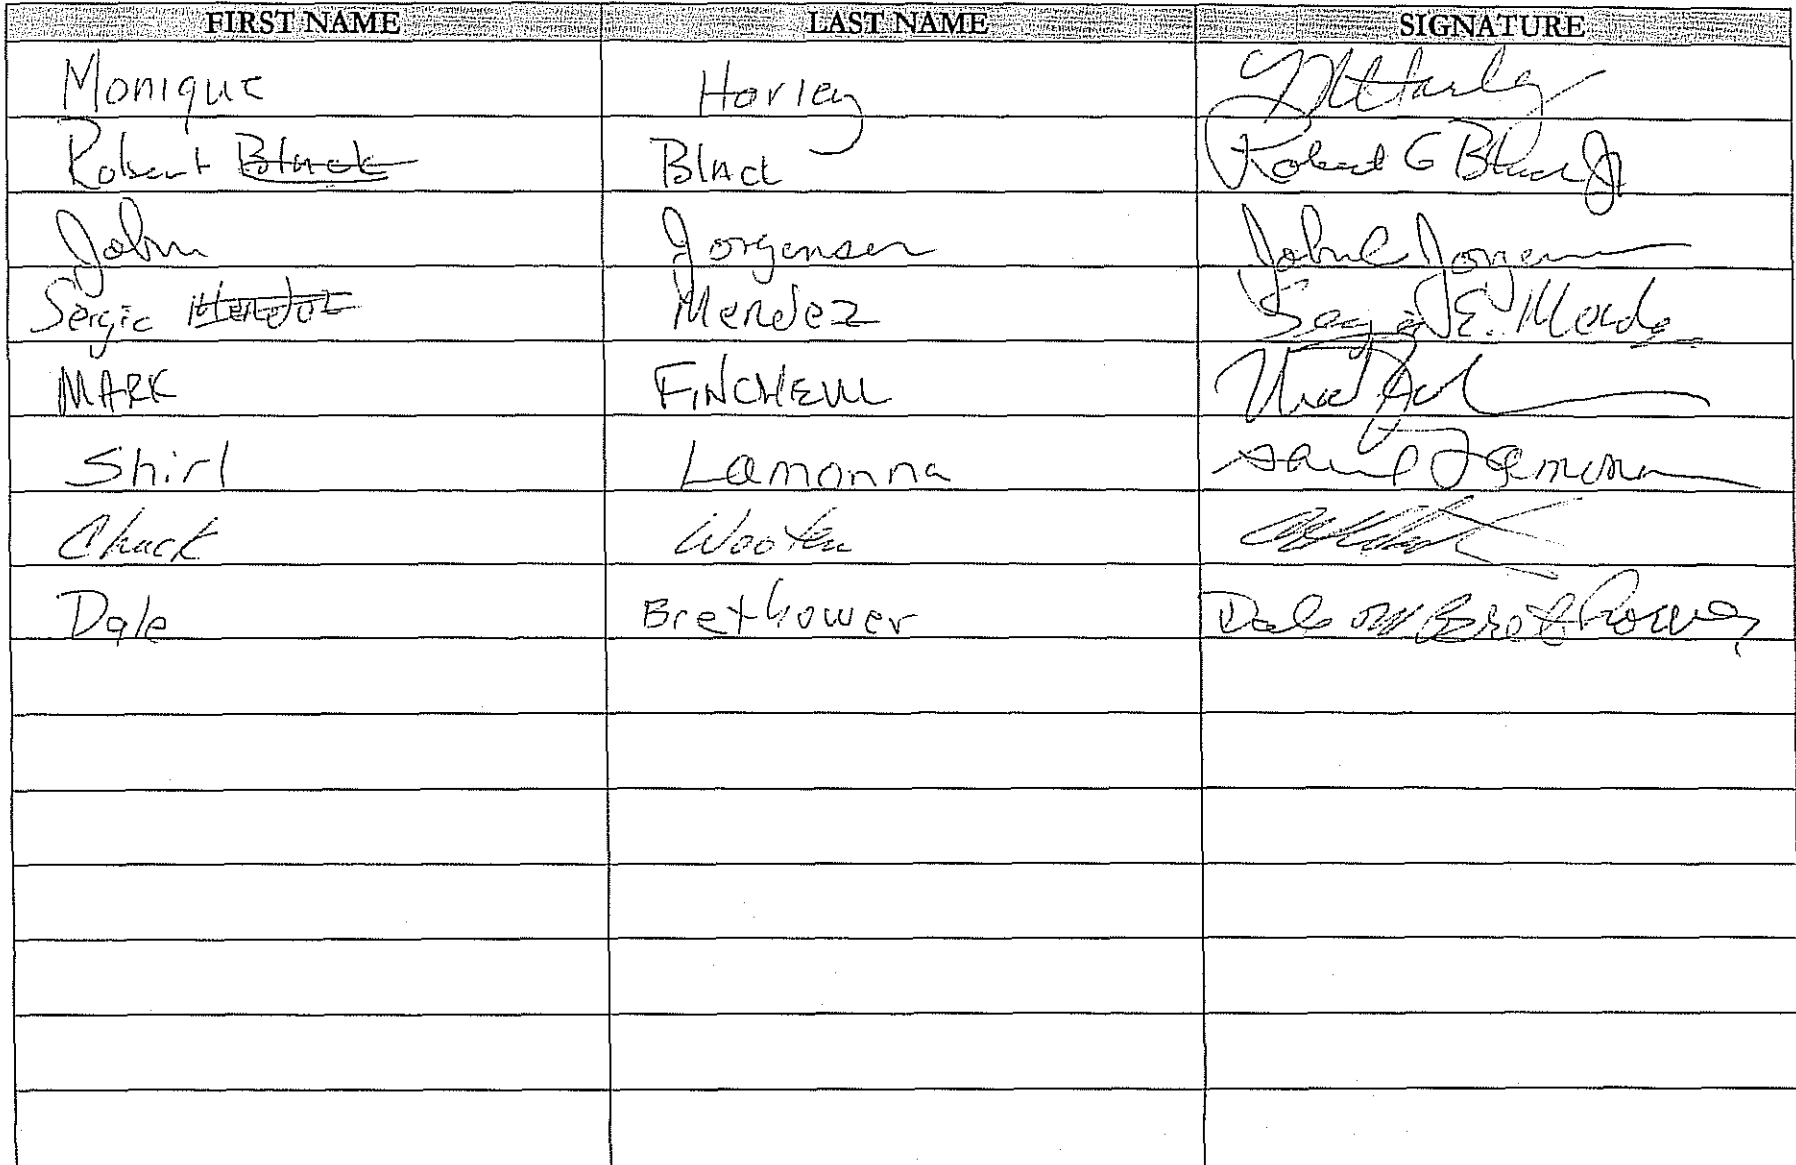 FIRST NAME LAST NAME SIGNATURE
Monique Harley Harley
Robert Black Black Robert G Black Jr
John Jorgensen John Jorgensen
Sergio Mendez Mendez Sergio E. Mendez
MARK FINCHEM
Shirl Lamonna Lamonna
Chuck Wooten
Dale Brethower Dale M Brethower